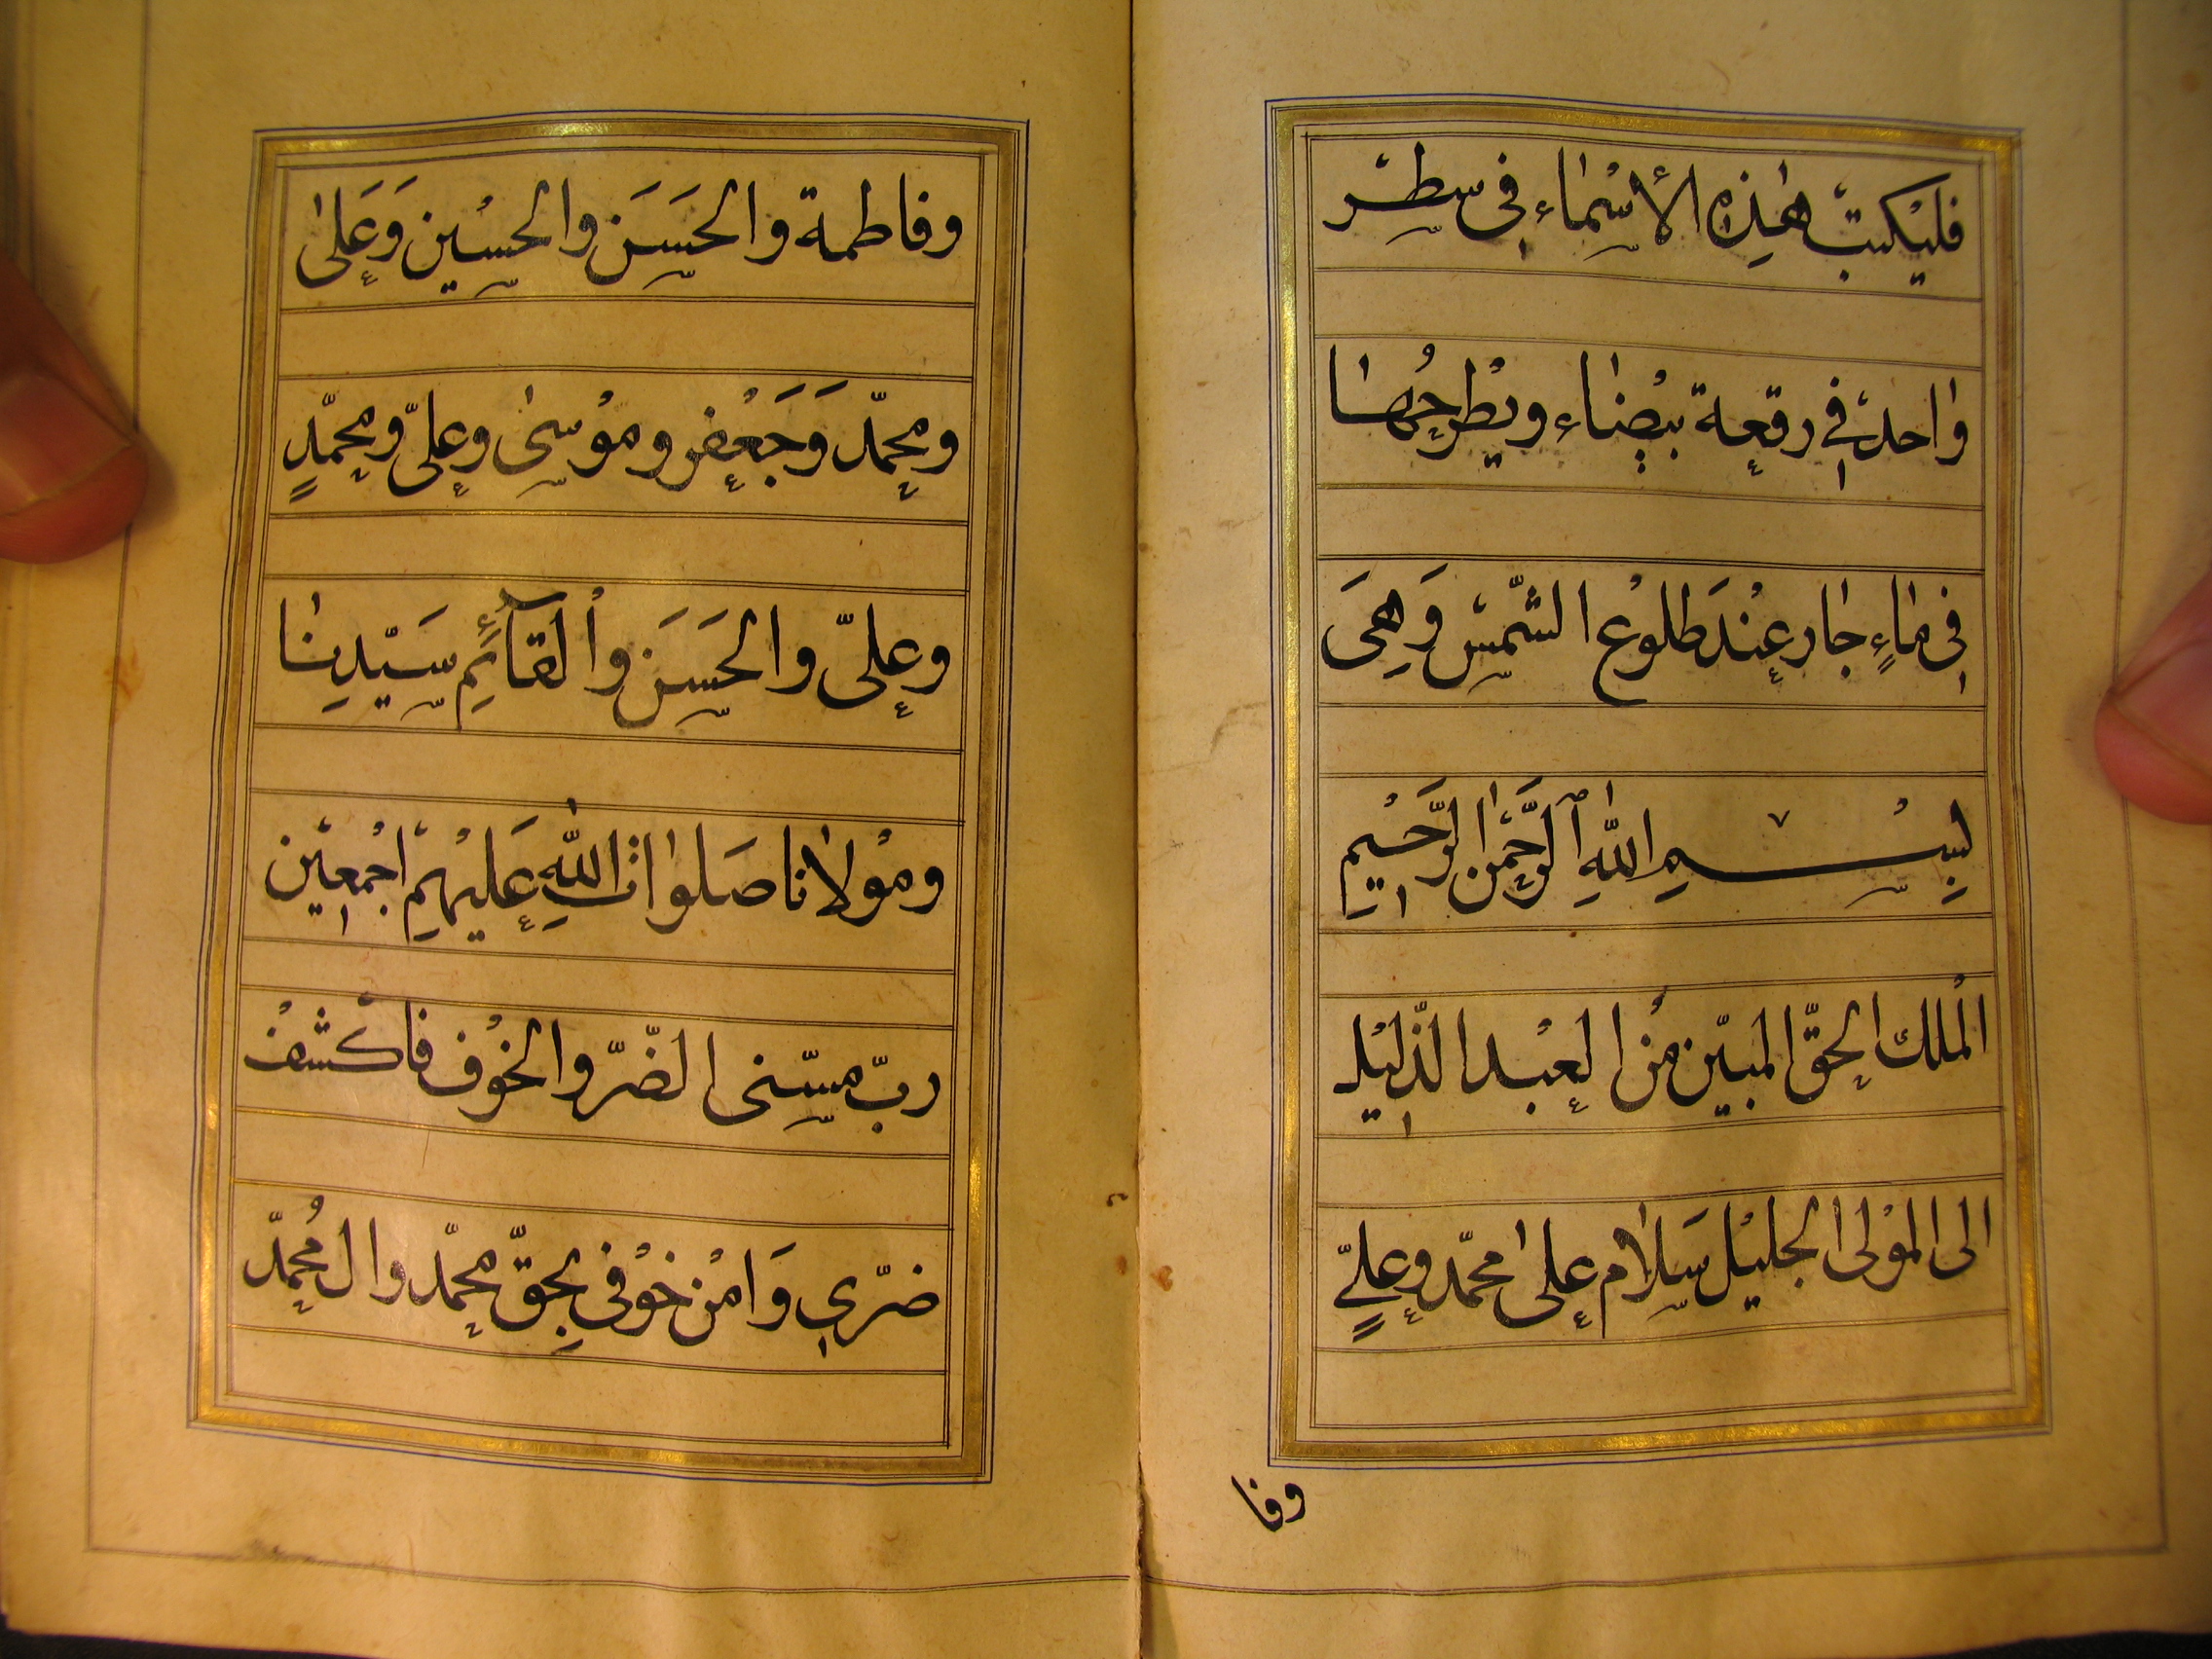 فليكتب هذه الأسماء في سطر
واحد في رقعة بيضاء ويطرحها
في ماءٍ جار عند طلوع الشمس وهي
بسم الله الرحمن الرحيم
الملك الحقّ المبين من العبد الذليل
الى المولى الجليل سلام على محمّد وعليٍّ
وفا
وفاطمة والحسن والحسين وعلى
ومحمّد وجعفر وموسى وعليّ ومحمّدٍ
وعليّ والحسن والقآئم سيّدنا
ومولانا صلوات الله عليهم اجمعين
ربّ مسّنى الضّرّ والخوف فاكشف
ضرّي وامن خوفي بحقّ محمّد وال محمّد